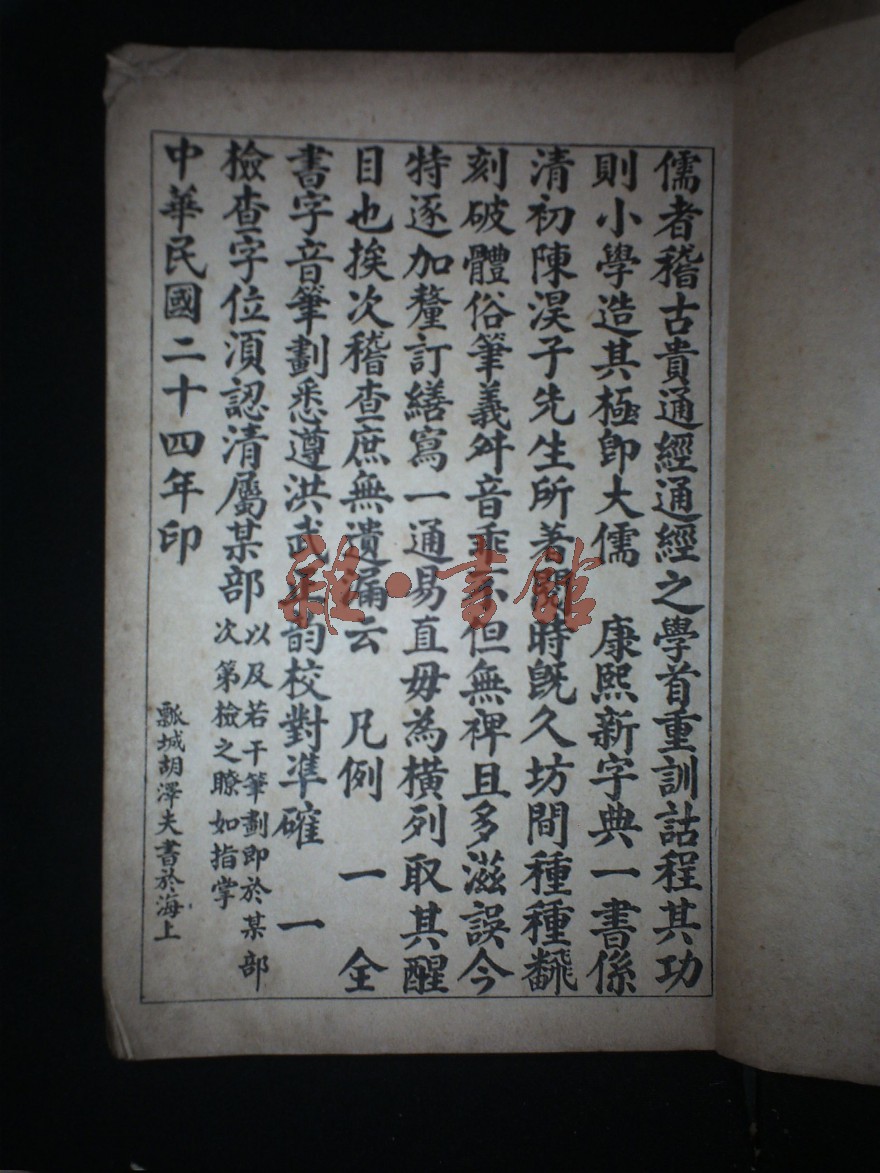 儒者稽古貴通經通經之學首重訓詁程其功
則小學造其極卽大儒　康熙新字典一書係
清初陳淏子先生所著閱時旣久坊間種種飜
刻破體俗筆義舛音乖不但無裨且多滋誤今
特逐加釐訂繕寫一通易直毋為橫列取其醒
目也挨次稽查庶無遺漏云　凡例　一　全
書字音筆劃悉遵洪武正韵校對準確　一
檢查字位須認清屬某部以及若干筆劃即於某部
次第檢之瞭如指掌
中華民國二十四年印
瓢城胡澤夫書於海上
雜·書館